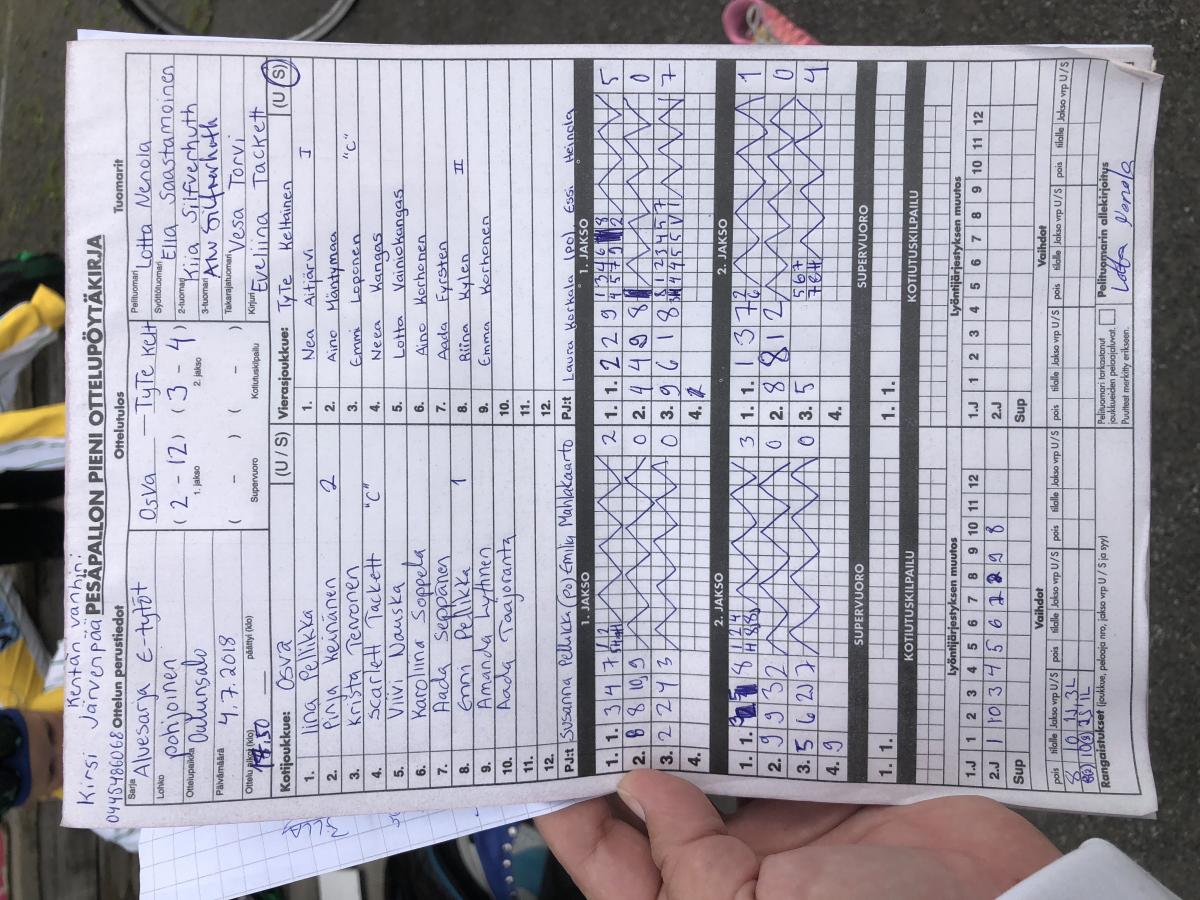 Kentän vanhin:
Kirsi Järvenpää PESÄPALLON PIENI OTTELUPÖYTÄKIRJA
0445486068 Ottelun perustiedot Ottelutulos Tuomarit
Sarja Aluesarja E-tytöt
Lohko pohjoinen
Ottelupaikka Oulunsalo
Päivämäärä 4.7.2018
Ottelu alkoi (klo) päättyi (klo)
OsVa — TyTe Kelt
( 2 - 12 ) ( 3 - 4 )
1. jakso 2. jakso
( - ) ( - )
Supervuoro Kotiutuskilpailu
Pelituomari Lotta Nenola
Syöttötuomari Ella Saastamoinen
2-tuomari Kiia Silfverhuth
3-tuomari Anu Silfverhuth
Takarajatuomari Vesa Torvi
Kirjuri Eveliina Tackett
Kotijoukkue: OsVa (U / S)
1. Iina Pellikka
2. Pinja Keinänen 2
3. Krista Tervonen
4. Scarlett Tackett "C"
5. Viivi Nauska
6. Karoliina Soppela
7. Aada Seppänen
8. Enni Pellikka 1
9. Amanda Lyttinen
10. Aada Taajoranta
11.
12.
PJ:t Susanna Pellikka (po) Emily Mahlakaarto
Vierasjoukkue: TyTe Keltainen (U S)
1. Nea Aitjärvi I
2. Aino Mäntymaa
3. Emmi Loponen "C"
4. Neea Kangas
5. Lotta Vainiokangas
6. Aino Korhonen
7. Aada Fyrsten
8. Riina Kylén II
9. Emma Korhonen
10.
11.
12.
PJ:t Laura Korkala (po) Essi Heinola
1. JAKSO 1. JAKSO
1. 1. 3 4 7 2
2. 8 8 10 9 0
3. 2 2 4 3 0
4.
1. 1. 2 2 9 5
2. 4 4 9 8 0
3. 9 6 1 8 7
4.
2. JAKSO 2. JAKSO
1. 1. 8 3
2. 9 9 3 2 0
3. 5 6 2 7 0
4. 9
1. 1. 1 3 7 1
2. 8 8 1 2 0
3. 5 4
4.
SUPERVUORO SUPERVUORO
1. 1. 1. 1.
KOTIUTUSKILPAILU KOTIUTUSKILPAILU
Lyöntijärjestyksen muutos Lyöntijärjestyksen muutos
1.J 1 2 3 4 5 6 7 8 9 10 11 12
2.J 1 10 3 4 5 6 7 2 9 8
Sup
1.J 1 2 3 4 5 6 7 8 9 10 11 12
2.J
Sup
Vaihdot Vaihdot
pois tilalle Jakso vrp U/S pois tilalle Jakso vrp U/S pois tilalle Jakso vrp U/S
pois tilalle Jakso vrp U/S pois tilalle Jakso vrp U/S pois tilalle Jakso vrp U/S
Rangaistukset (joukkue, pelaaja nro, jakso vrp U / S ja syy)
Pelituomari tarkastanut
joukkueiden pelaajaluvat.
Puutteet merkitty erikseen.
Pelituomarin allekirjoitus
Lotta Nenola